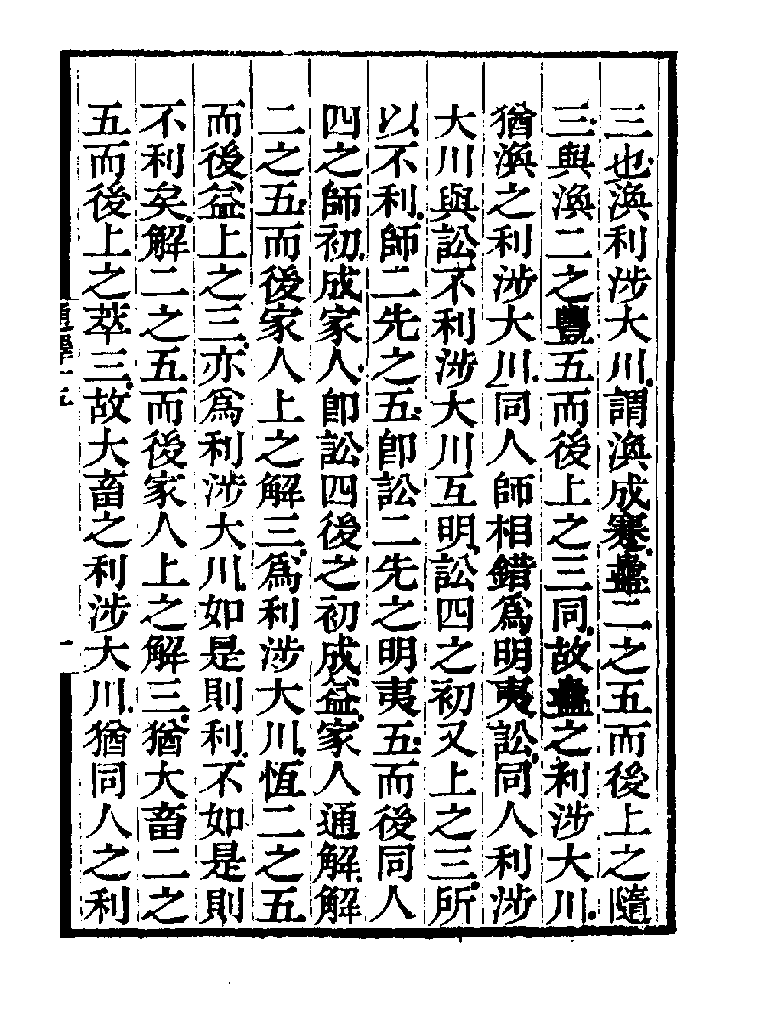 三也渙利涉大川謂渙成蹇蠱二之五而後上之隨
三與渙二之豐五而後上之三同故蠱之利涉大川
猶渙之利涉大川同人師相錯爲明夷訟同人利涉
大川與訟不利涉大川互明訟四之初又上之三所
以不利師二先之五卽訟二先之明夷五而後同人
四之師初成家人卽訟四後之初成益家人通解解
二之五而後家人上之解三爲利涉大川恆二之五
而後益上之三亦爲利涉大川如是則利不如是則
不利矣解二之五而後家人上之解三猶大畜二之
五而後上之萃三故大畜之利涉大川猶同人之利
通釋十五